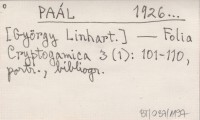 PAÁL 1926...
[György Linhart.] — Folia
Cryptogamica 3(1): 101-110,
portr., bibliogr.